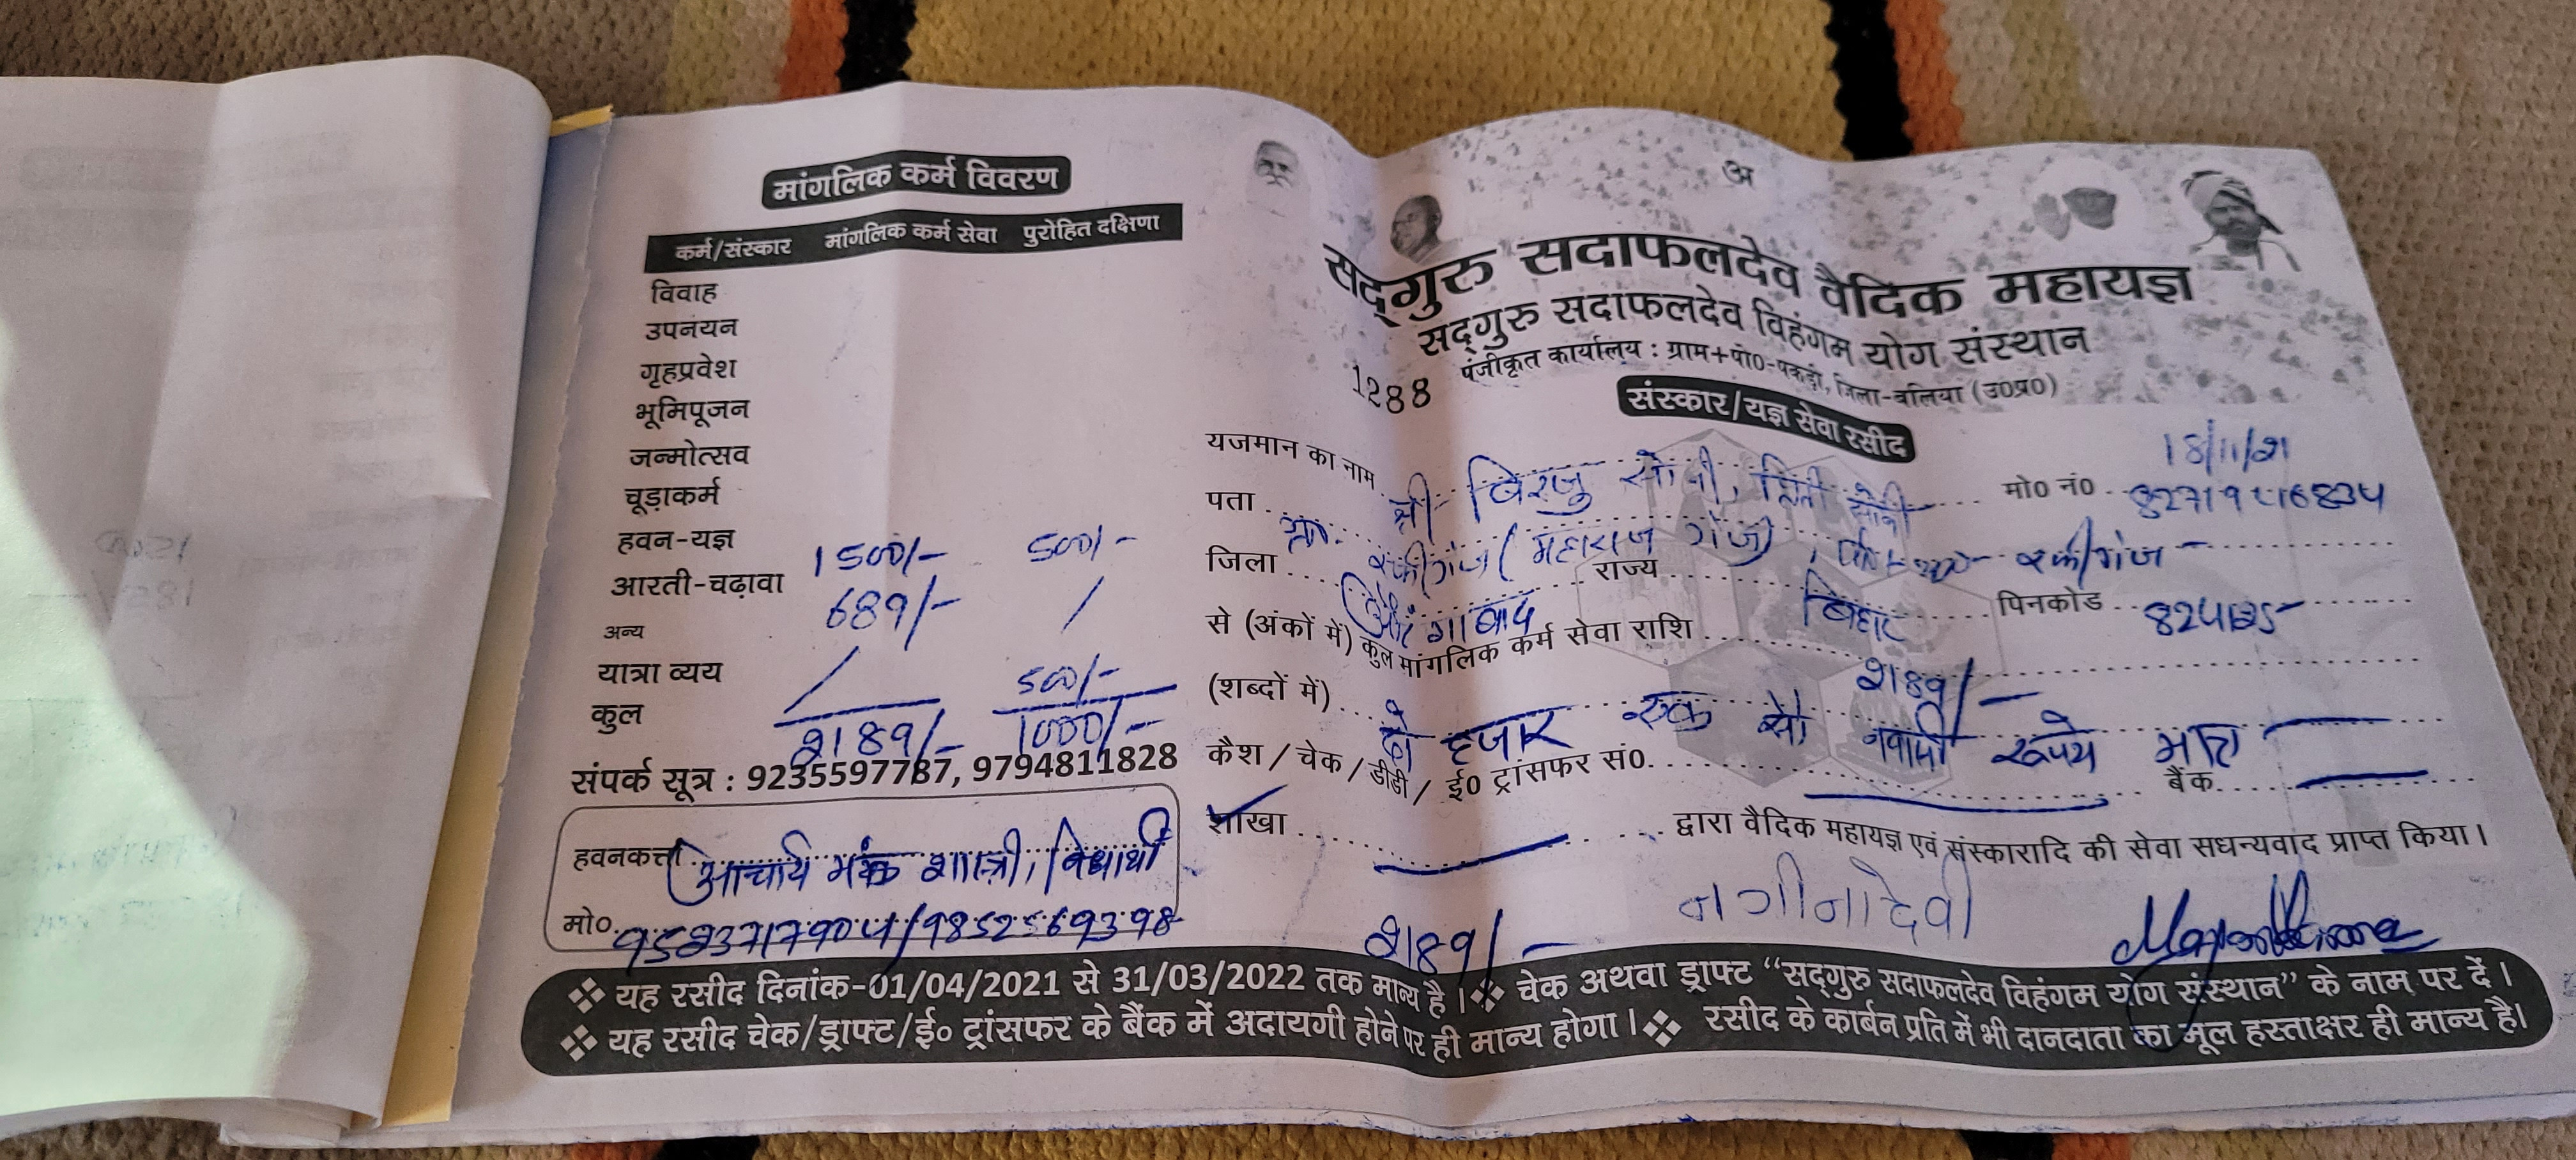 मांगलिक कर्म विवरण
कर्म/संस्कार मांगलिक कर्म सेवा पुरोहित दक्षिणा
विवाह
उपनयन
गृहप्रवेश
भूमिपूजन
जन्मोत्सव
चूड़ाकर्म
हवन-यज्ञ 1500/- 500/-
आरती-चढ़ावा 689/- /
अन्य
यात्रा व्यय / 500/-
कुल 2189/- 1000/-
संपर्क सूत्र : 9235597787, 9794811828
हवनकर्त्ता आचार्य शास्त्री, विद्यार्थी
मो०
अ
सद्गुरु सदाफलदेव वैदिक महायज्ञ
सद्गुरु सदाफलदेव विहंगम योग संस्थान
पंजीकृत कार्यालय : ग्राम+पो0-पकड़ी, जिला-बलिया (उ0प्र0)
1288
संस्कार/यज्ञ सेवा रसीद
18/11/21
यजमान का नाम श्री बिरजु सोनी, सोनी मो0 नं0
पता ग्रा०- रफीगंज (महाराज गंज), रफीगंज
जिला औरंगाबाद राज्य बिहार पिनकोड 824125
से (अंकों में) कुल मांगलिक कर्म सेवा राशि 2189/-
(शब्दों में) दो हजार एक सौ नवासी रूपये मात्र
कैश / चेक / डीडी / ई0 ट्रांसफर सं0 बैंक
शाखा द्वारा वैदिक महायज्ञ एवं संस्कारादि की सेवा सधन्यवाद प्राप्त किया।
2189/- नगीनादेवी
❖ यह रसीद दिनांक-01/04/2021 से 31/03/2022 तक मान्य है। ❖ चेक अथवा ड्राफ्ट “सद्गुरु सदाफलदेव विहंगम योग संस्थान” के नाम पर दें।
❖ यह रसीद चेक/ड्राफ्ट/ई० ट्रांसफर के बैंक में अदायगी होने पर ही मान्य होगा। ❖ रसीद के कार्बन प्रति में भी दानदाता का मूल हस्ताक्षर ही मान्य है।